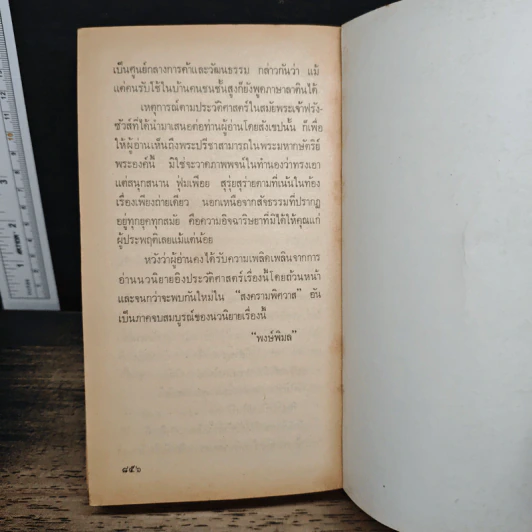 เป็นศูนย์กลางการค้าและวัฒนธรรม กล่าวกันว่า แม้
แต่คนรับใช้ในบ้านคนชนชั้นสูงก็ยังพูดภาษาลาตินได้
เหตุการณ์ตามประวัติศาสตร์ในสมัยพระเจ้าฟรัง-
ซัวส์ที่ได้นำมาเสนอต่อท่านผู้อ่านโดยสังเขปนั้น ก็เพื่อ
ให้ผู้อ่านเห็นถึงพระปรีชาสามารถในพระมหากษัตริย์
พระองค์นี้ มิใช่จะวาดภาพพจน์ในทำนองว่าทรงเอา
แต่สนุกสนาน ฟุ่มเฟือย สุรุ่ยสุร่ายตามที่เน้นในท้อง
เรื่องเพียงถ่ายเดียว นอกเหนือจากสัจธรรมที่ปรากฏ
อยู่ทุกยุคทุกสมัย คือความอิจฉาริษยาที่มิได้ให้คุณแก่
ผู้ประพฤติเลยแม้แต่น้อย
หวังว่าผู้อ่านคงได้รับความเพลิดเพลินจากการ
อ่านนวนิยายอิงประวัติศาสตร์เรื่องนี้โดยถ้วนหน้า
และจนกว่าจะพบกันใหม่ใน "สงครามพิศวาส" อัน
เป็นภาคจบสมบูรณ์ของนวนิยายเรื่องนี้
"พงษ์พิมล"
๘๕๖